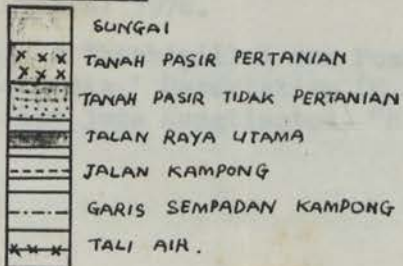 SUNGAI
TANAH PASIR PERTANIAN
TANAH PASIR TIDAK PERTANIAN
JALAN RAYA UTAMA
JALAN KAMPONG
GARIS SEMPADAN KAMPONG
TALI AIR.